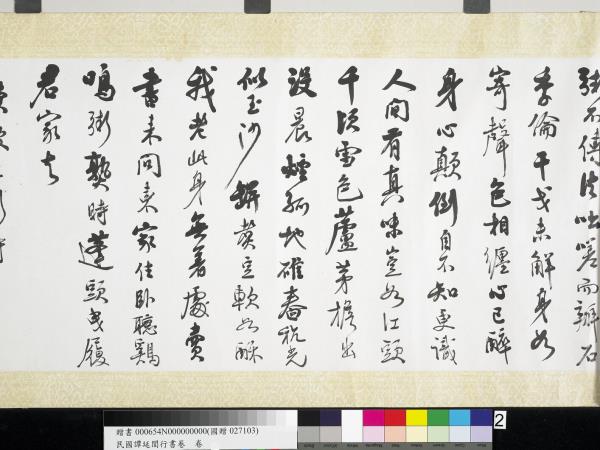 粥不傳法咄嗟而辦石
季倫干戈未解身如
寄聲色相纏心已醉
身心顛倒自不知更識
人間有真味豈如江頭
千頃雪色蘆茅檐出
沒晨煙孤地碓舂秔光
似玉沙缾煮豆軟如酥
我老此身無著處賣
書來問東家住臥聽鷄
鳴粥熟時蓬頭曳履
君家去
贈書 000654N000000000(國贈 027103)
民國譚延闓行書卷 卷
2